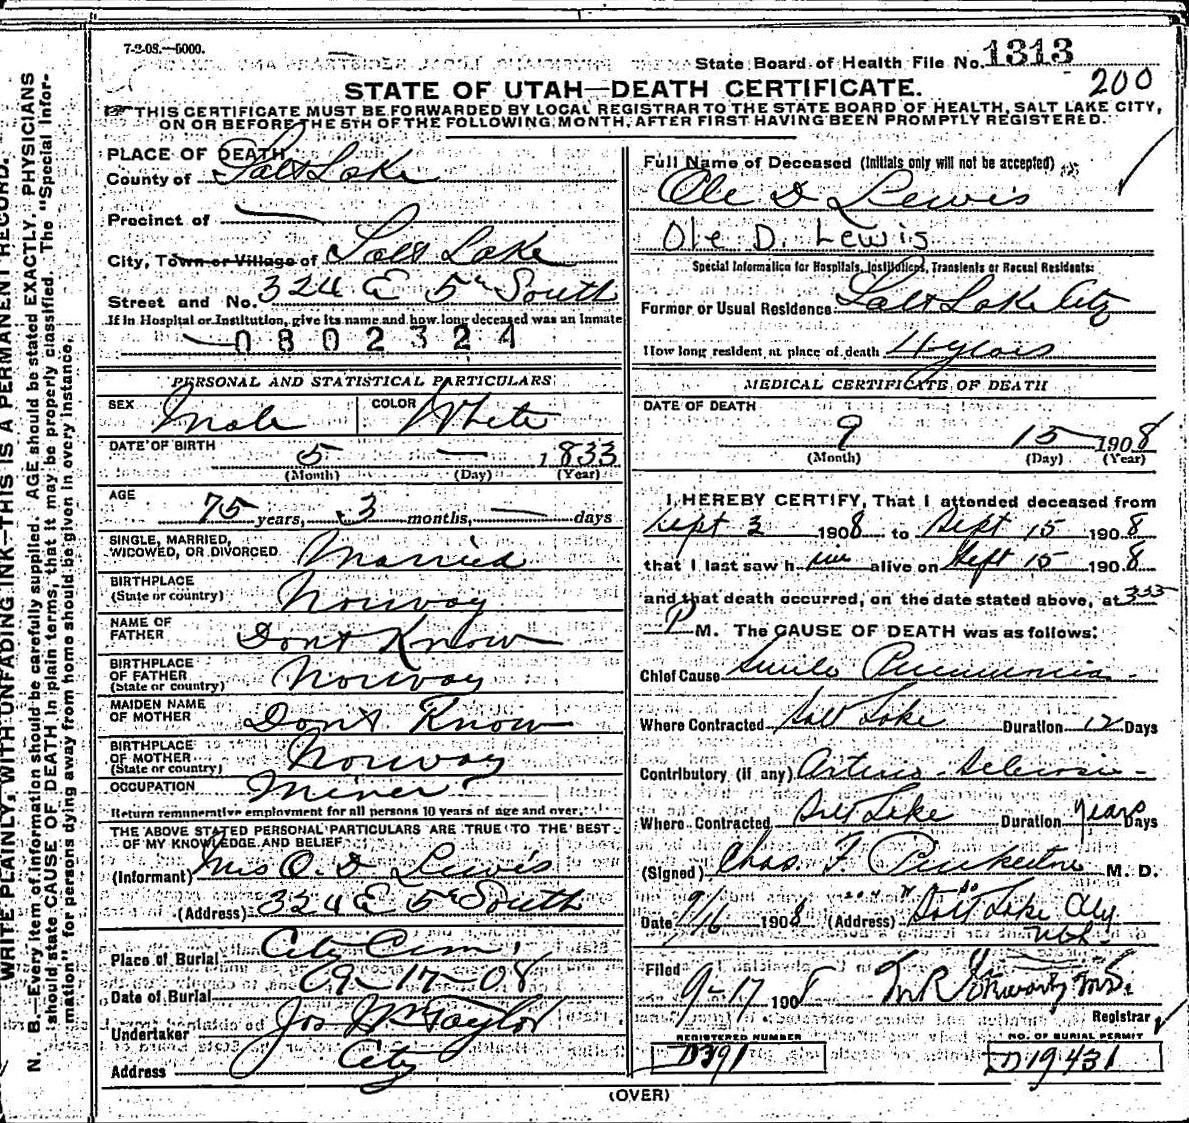 7-2-08.—5000.
State Board of Health File No. 1313
200
STATE OF UTAH—DEATH CERTIFICATE.
THIS CERTIFICATE MUST BE FORWARDED BY LOCAL REGISTRAR TO THE STATE BOARD OF HEALTH, SALT LAKE CITY,
ON OR BEFORE THE 5TH OF THE FOLLOWING MONTH, AFTER FIRST HAVING BEEN PROMPTLY REGISTERED.
WRITE PLAINLY, WITH UNFADING INK—THIS IS A PERMANENT RECORD.
N. B.—Every item of information should be carefully supplied. AGE should be stated EXACTLY. PHYSICIANS
should state CAUSE OF DEATH in plain terms, that it may be properly classified. The "Special Infor-
mation" for persons dying away from home should be given in every instance.
PLACE OF DEATH
County of Salt Lake
Precinct of —
City, Town or Village of Salt Lake
Street and No. 324 E 5th South
If in Hospital or Institution, give its name and how long deceased was an inmate
0802324
PERSONAL AND STATISTICAL PARTICULARS
SEX Male COLOR White
DATE OF BIRTH 5 — 1833
(Month) (Day) (Year)
AGE
75 years, 3 months, — days
SINGLE, MARRIED,
WIDOWED, OR DIVORCED Married
BIRTHPLACE
(State or country) Norway
NAME OF
FATHER Dont Know
BIRTHPLACE
OF FATHER
(State or country) Norway
MAIDEN NAME
OF MOTHER Dont Know
BIRTHPLACE
OF MOTHER
(State or country) Norway
OCCUPATION Miner
Return remunerative employment for all persons 10 years of age and over.
THE ABOVE STATED PERSONAL PARTICULARS ARE TRUE TO THE BEST
OF MY KNOWLEDGE AND BELIEF
(Informant) Mrs O. D Lewis
(Address) 324 E 5th South
Place of Burial City Cem
Date of Burial 9-17-08
Undertaker Jos Wm Taylor
Address City
Full Name of Deceased (Initials only will not be accepted)
Ole D Lewis
Ole D. Lewis
Special Information for Hospitals, Institutions, Transients or Recent Residents:
Former or Usual Residence Salt Lake City
How long resident at place of death 4 years
MEDICAL CERTIFICATE OF DEATH
DATE OF DEATH
9 15 1908
(Month) (Day) (Year)
I HEREBY CERTIFY, That I attended deceased from
Sept 3 1908 to Sept 15 1908
that I last saw him alive on Sept 15 1908
and that death occurred, on the date stated above, at 335
P M. The CAUSE OF DEATH was as follows:
Chief Cause Senile Pneumonia
Where Contracted Salt Lake Duration 12 Days
Contributory (if any) Arterio-Sclerosis
Where Contracted Salt Lake Duration years Days
(Signed) Chas. F. Pinkerton M. D.
Date 9/16 1908 (Address) Salt Lake City
Utah.
Filed
9-17 1908 M.D.
Registrar
REGISTERED NUMBER NO. OF BURIAL PERMIT
D391 D19431
(OVER)